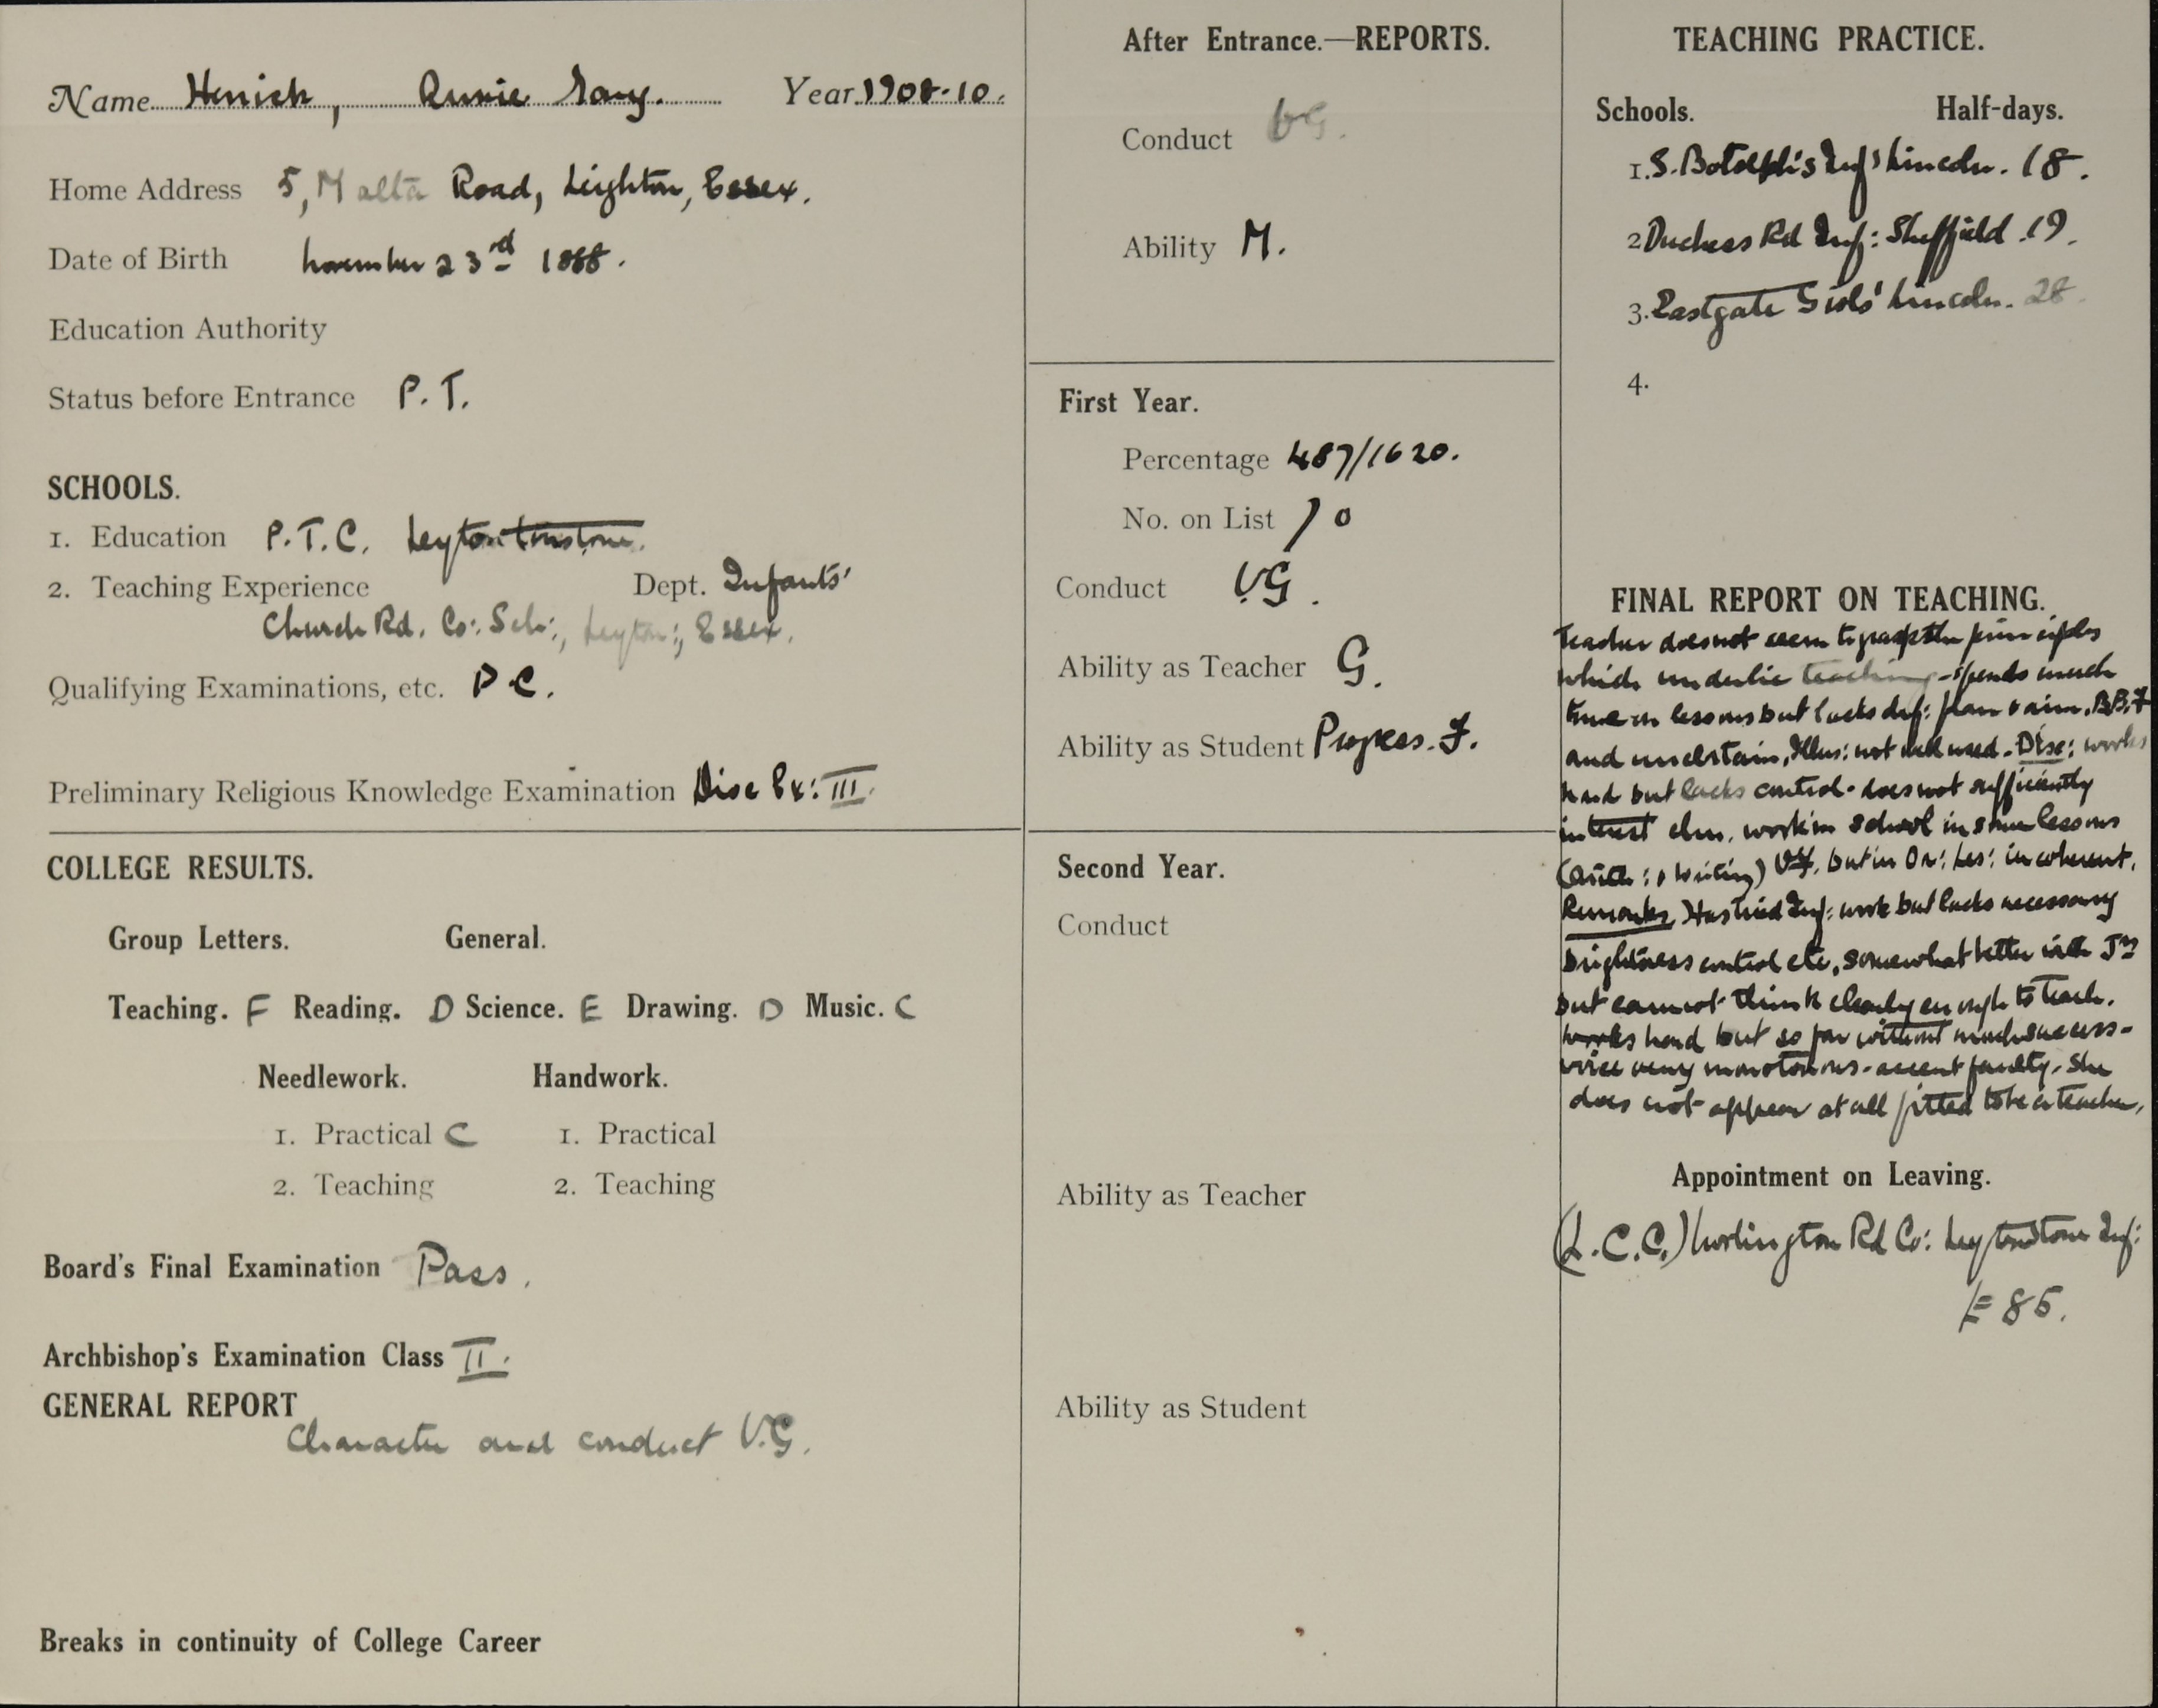 Name Herrick, Annie Mary. Year 1908-10.
Home Address 5, Malta Road, Leighton, Essex.
Date of Birth November 23rd 1888.
Education Authority
Status before Entrance P.T.
SCHOOLS.
1. Education P.T.C. Leytonstone.
2. Teaching Experience Dept. Infants'
Church Rd. Co: Sch:, Leyton;, Essex.
Qualifying Examinations, etc. P.C.
Preliminary Religious Knowledge Examination Dioc Ex: III.
COLLEGE RESULTS.
Group Letters. General.
Teaching. F Reading. D Science. E Drawing. D Music. C
Needlework. Handwork.
1. Practical C 1. Practical
2. Teaching 2. Teaching
Board's Final Examination Pass.
Archbishop's Examination Class II.
GENERAL REPORT
Character and conduct V.G.
Breaks in continuity of College Career
After Entrance.—REPORTS.
Conduct VG.
Ability M.
First Year.
Percentage 487/1620.
No. on List 70
Conduct VG.
Ability as Teacher G.
Ability as Student Progress. F.
Second Year.
Conduct
Ability as Teacher
Ability as Student
TEACHING PRACTICE.
Schools. Half-days.
1. S. Botolph's Inf' Lincoln. 18.
2 Duchess Rd Inf: Sheffield. 19.
3. Eastgate Girls' Lincoln. 28.
4.
FINAL REPORT ON TEACHING.
Teacher does not seem to grasp the principles
which underlie teaching - spends much
time on lessons but lacks def: plan & aim. B.B. F
and uncertain, Illus: not well used. Disc: works
hard but lacks control - does not sufficiently
interest chn. work in school in some lessons
(Arith: & Writing) VF. but in Or: Les: incoherent.
Remarks. Has tried Inf: work but lacks necessary
brightness control etc. somewhat better with Jrs
but cannot think clearly enough to teach.
works hard but so far without much success -
voice very monotonous - accent faulty. She
does not appear at all fitted to be a teacher.
Appointment on Leaving.
(L.C.C.) Rd Co: Leytonstone Inf:
£85.